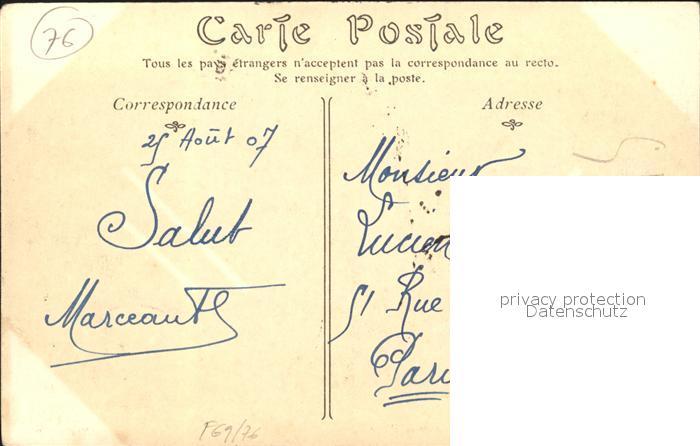 76
Carte Postale
Tous les pays étrangers n'acceptent pas la correspondance au recto.
Se renseigner à la poste.
Correspondance
25 Août 07
Salut
Adresse
Monsieur
Lucien
51 Rue
privacy protection
Datenschutz
F69/76